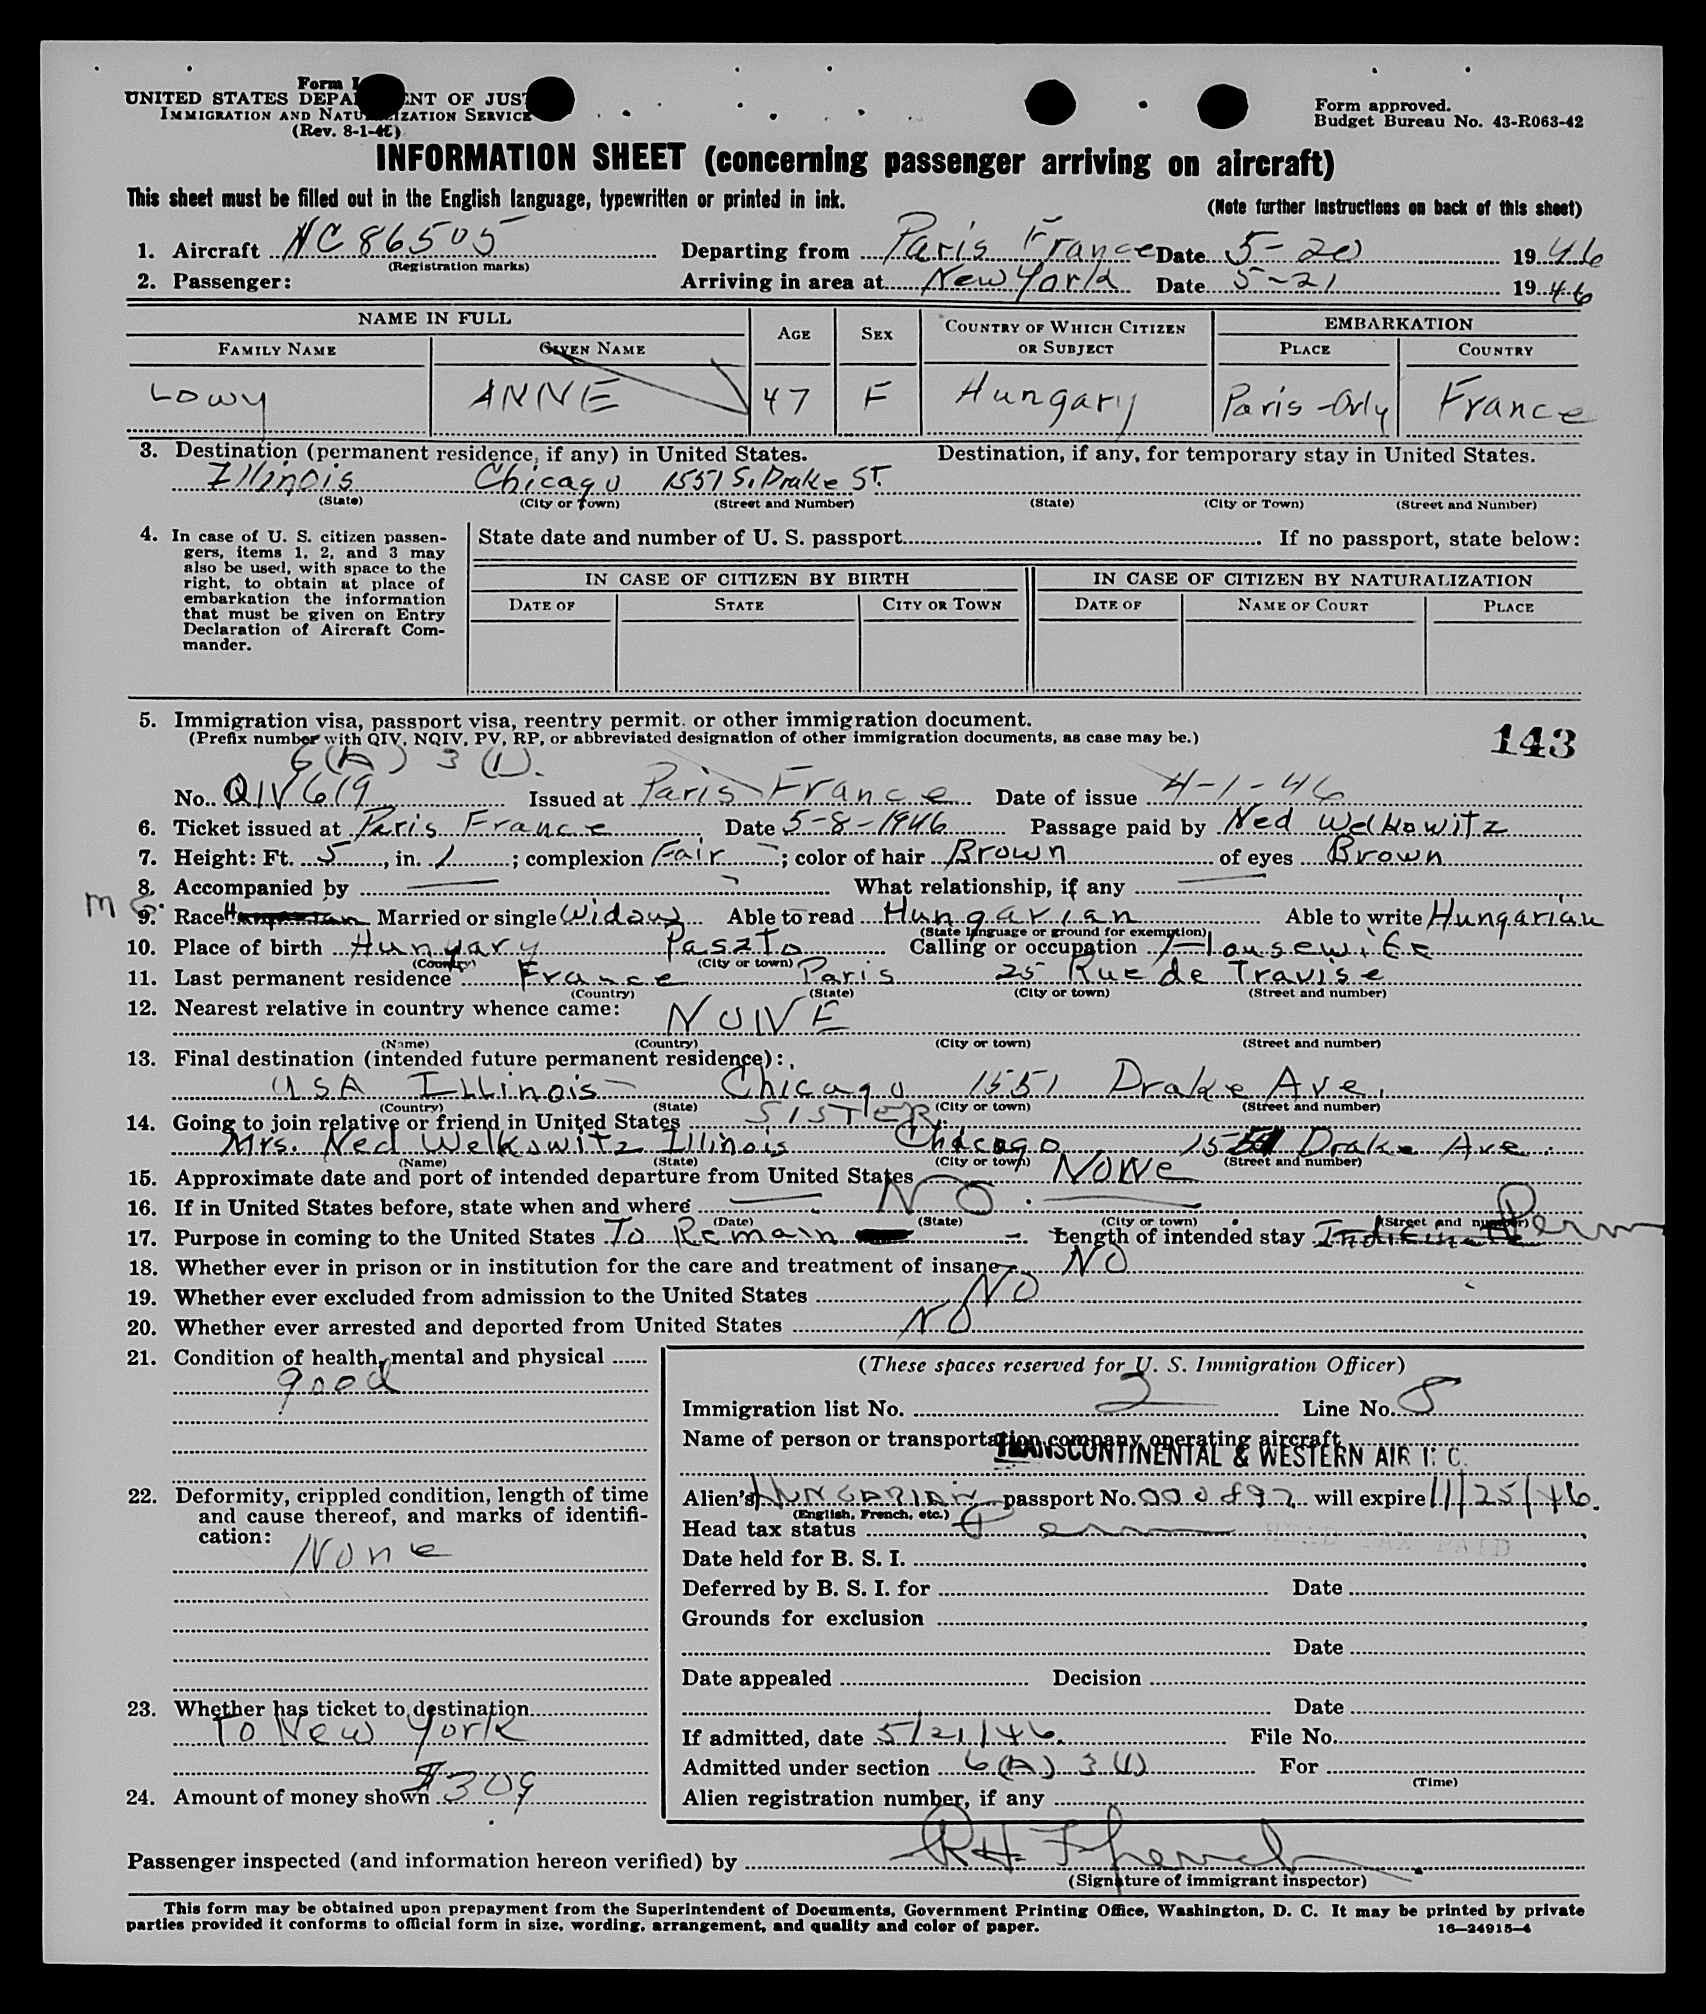 Form I
UNITED STATES DEPA ENT OF JUST
IMMIGRATION AND NATU IZATION SERVICE
(Rev. 8-1-4
Form approved.
Budget Bureau No. 43-R063-42
INFORMATION SHEET (concerning passenger arriving on aircraft)
This sheet must be filled out in the English language, typewritten or printed in ink.
(Note further instructions on back of this sheet)
1. Aircraft NC 86505 Departing from Paris France Date 5-20 1946
(Registration marks)
2. Passenger: Arriving in area at New York Date 5-21 1946
NAME IN FULL AGE SEX COUNTRY OF WHICH CITIZEN OR SUBJECT EMBARKATION
FAMILY NAME GIVEN NAME PLACE COUNTRY
LOWY ANNE 47 F Hungary Paris-Orly France
3. Destination (permanent residence, if any) in United States. Destination, if any, for temporary stay in United States.
Illinois Chicago 1551 S. Drake ST.
(State) (City or Town) (Street and Number) (State) (City or Town) (Street and Number)
4. In case of U. S. citizen passengers, items 1, 2, and 3 may
also be used, with space to the
right, to obtain at place of
embarkation the information
that must be given on Entry
Declaration of Aircraft Commander.
State date and number of U. S. passport If no passport, state below:
IN CASE OF CITIZEN BY BIRTH IN CASE OF CITIZEN BY NATURALIZATION
DATE OF STATE CITY OR TOWN DATE OF NAME OF COURT PLACE
5. Immigration visa, passport visa, reentry permit. or other immigration document.
(Prefix number with QIV, NQIV, PV, RP, or abbreviated designation of other immigration documents, as case may be.)
143
6(A) 3 (1).
No. QIV 619 Issued at Paris France Date of issue 4-1-46
6. Ticket issued at Paris France Date 5-8-1946 Passage paid by Ned Welkowitz
7. Height: Ft. 5, in. 1; complexion Fair; color of hair Brown of eyes Brown
8. Accompanied by — What relationship, if any —
9. Race Married or single Widow Able to read Hungarian Able to write Hungarian
(State language or ground for exemption)
10. Place of birth Hungary Paszto Calling or occupation Housewife
(Country) (City or town)
11. Last permanent residence France Paris 25 Rue de Travise
(Country) (State) (City or town) (Street and number)
12. Nearest relative in country whence came: NONE
(Name) (Country) (City or town) (Street and number)
13. Final destination (intended future permanent residence):
USA Illinois Chicago 1551 Drake Ave.
(Country) (State) (City or town) (Street and number)
14. Going to join relative or friend in United States SISTER
Mrs. Ned Welkowitz Illinois Chicago 1551 Drake Ave.
(Name) (State) (City or town) (Street and number)
15. Approximate date and port of intended departure from United States NONE
16. If in United States before, state when and where — NO —
(Date) (State) (City or town) (Street and number)
17. Purpose in coming to the United States To Remain Length of intended stay Perm
18. Whether ever in prison or in institution for the care and treatment of insane NO
19. Whether ever excluded from admission to the United States NO
20. Whether ever arrested and deported from United States NO
21. Condition of health, mental and physical
good
22. Deformity, crippled condition, length of time
and cause thereof, and marks of identification:
None
23. Whether has ticket to destination
To New York
24. Amount of money shown $309
(These spaces reserved for U. S. Immigration Officer)
Immigration list No. 2 Line No. 8
Name of person or transportation company operating aircraft
TRANSCONTINENTAL & WESTERN AIR
Alien's HUNGARIAN passport No. 000892 will expire 11/25/46.
(English, French, etc.)
Head tax status Perm
Date held for B. S. I.
Deferred by B. S. I. for Date
Grounds for exclusion
Date
Date appealed Decision
Date
If admitted, date 5/21/46. File No.
Admitted under section 6(A) 3 (1) For
(Time)
Alien registration number, if any
Passenger inspected (and information hereon verified) by
(Signature of immigrant inspector)
This form may be obtained upon prepayment from the Superintendent of Documents, Government Printing Office, Washington, D. C. It may be printed by private
parties provided it conforms to official form in size, wording, arrangement, and quality and color of paper.
16—24915-4